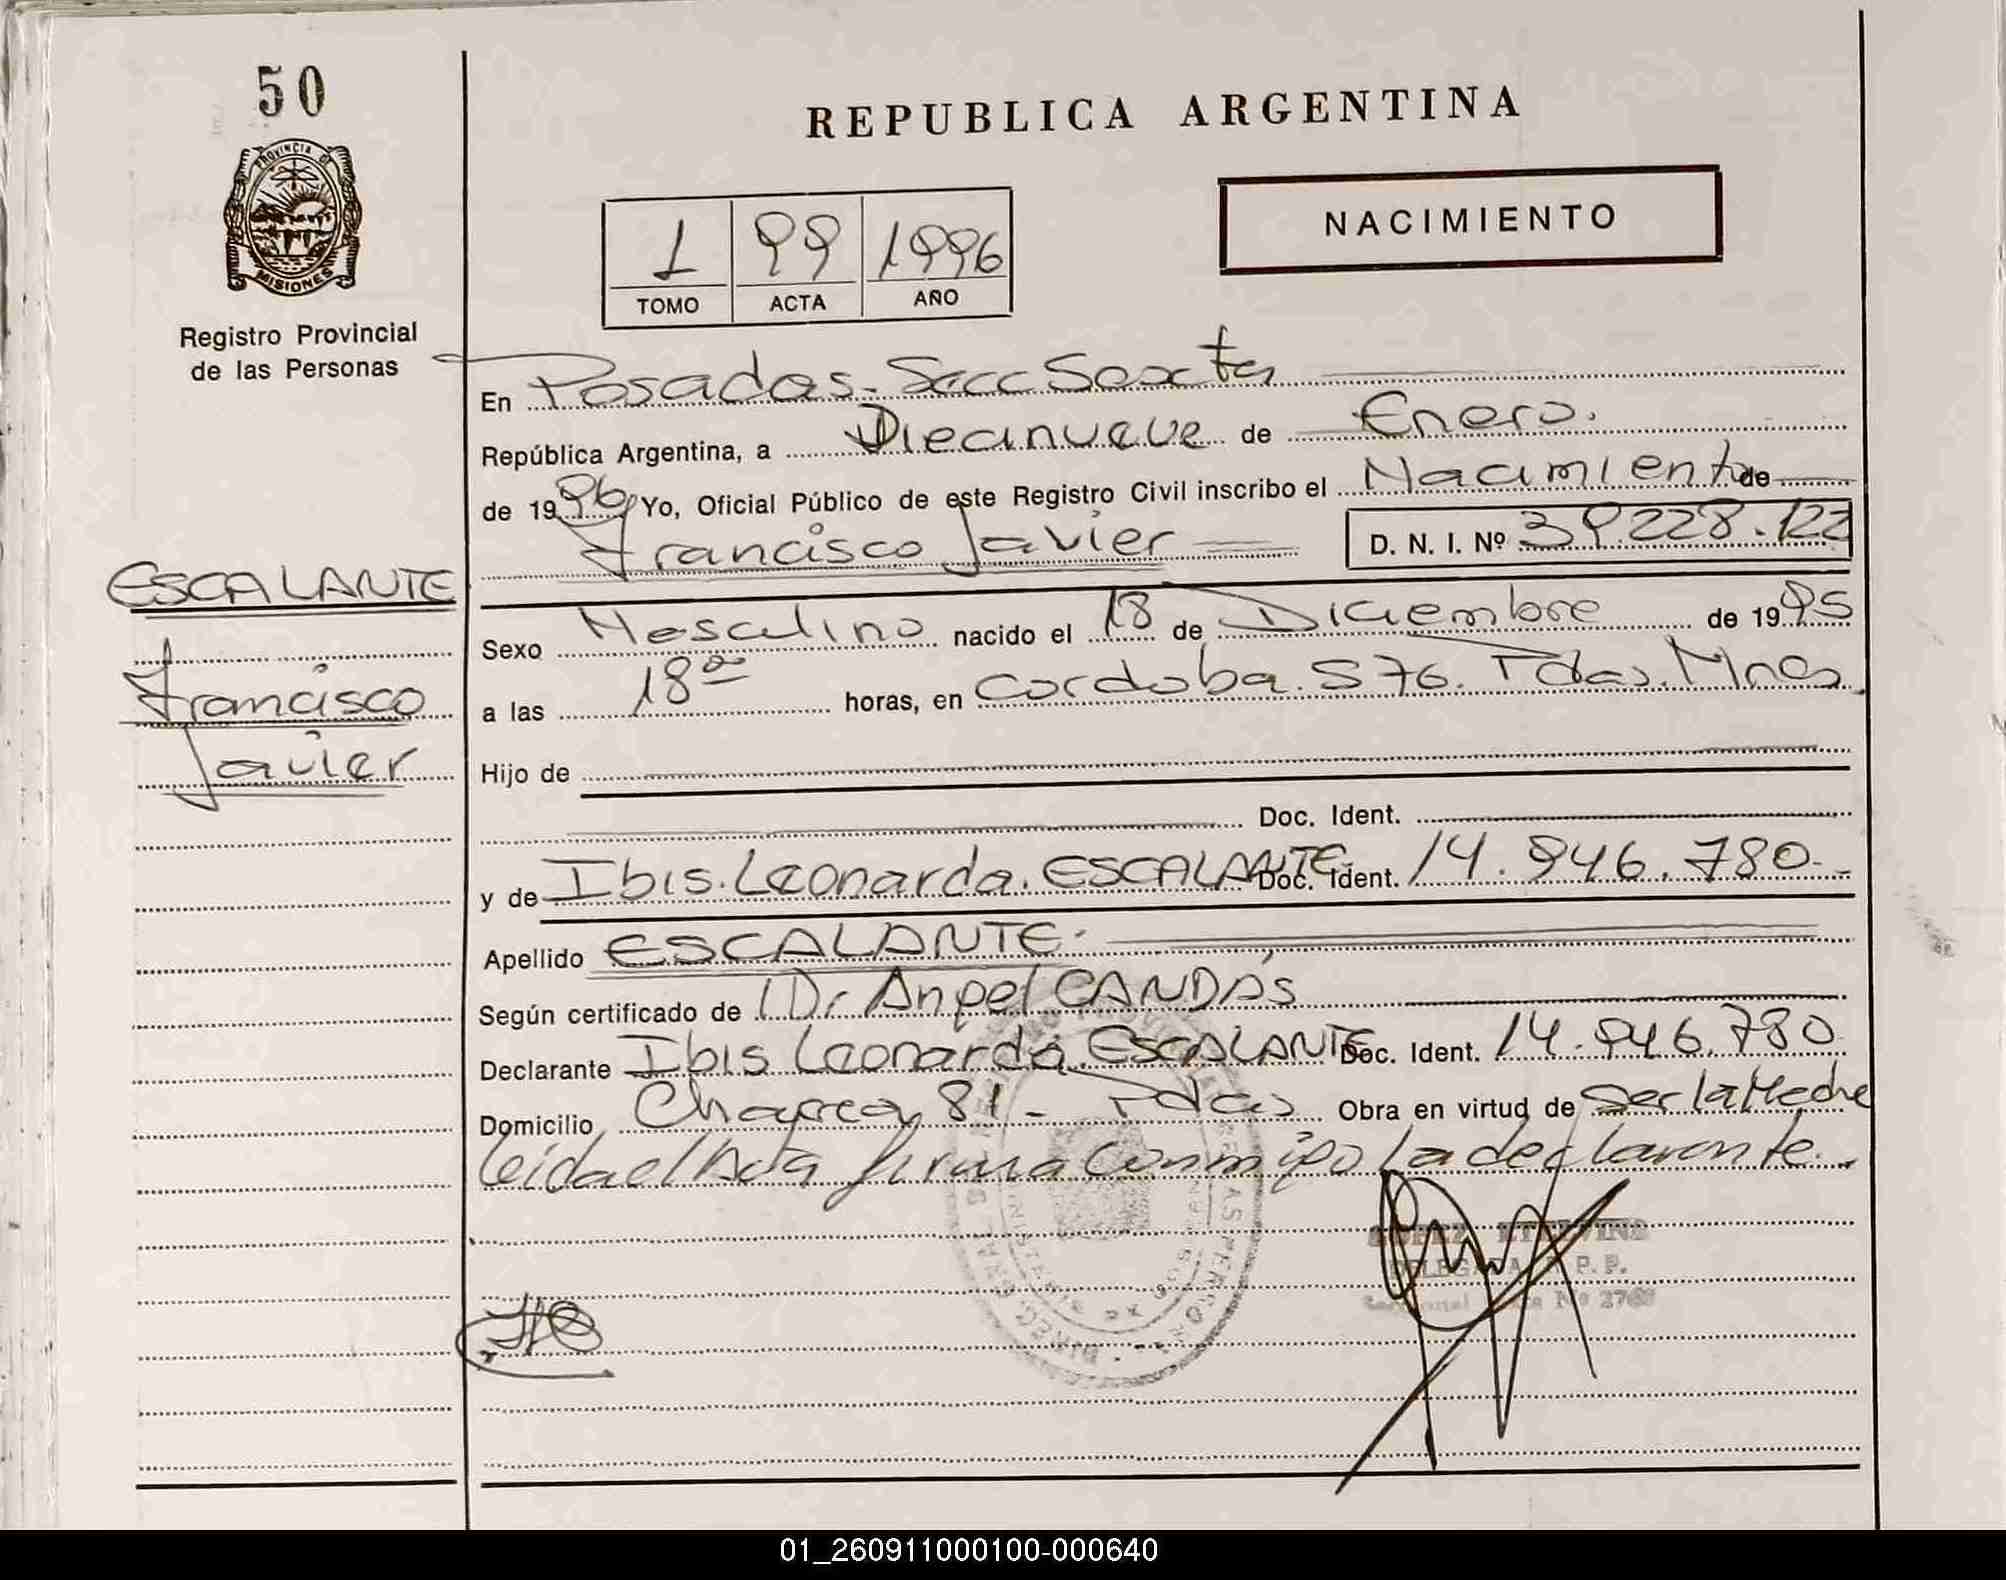 50
PROVINCIA DE
MISIONES
Registro Provincial
de las Personas
REPUBLICA ARGENTINA
NACIMIENTO
1 99 1996
TOMO ACTA AÑO
En Posadas. Secc Sexta
República Argentina, a Diecinueve de Enero.
de 1996 Yo, Oficial Público de este Registro Civil inscribo el Nacimiento de
Francisco Javier D. N. I. Nº 39.228.122
ESCALANTE
Francisco
Javier
Sexo Masculino nacido el 18 de Diciembre de 1995
a las 18 horas, en Cordoba. 576. Pdas. Mnes.
Hijo de
Doc. Ident.
y de Ibis. Leonarda. ESCALANTE. Doc. Ident. 14.946.780.
Apellido ESCALANTE.
Según certificado de Dr Angel CANDÁS
Declarante Ibis Leonarda. ESCALANTE Doc. Ident. 14.946.780
Domicilio 81 - Pdas Obra en virtud de Ser la Madre
leida el Acta firma conmigo la declarante.
LOPEZ
DELEGADA R. P. P.
Nº
01_260911000100-000640